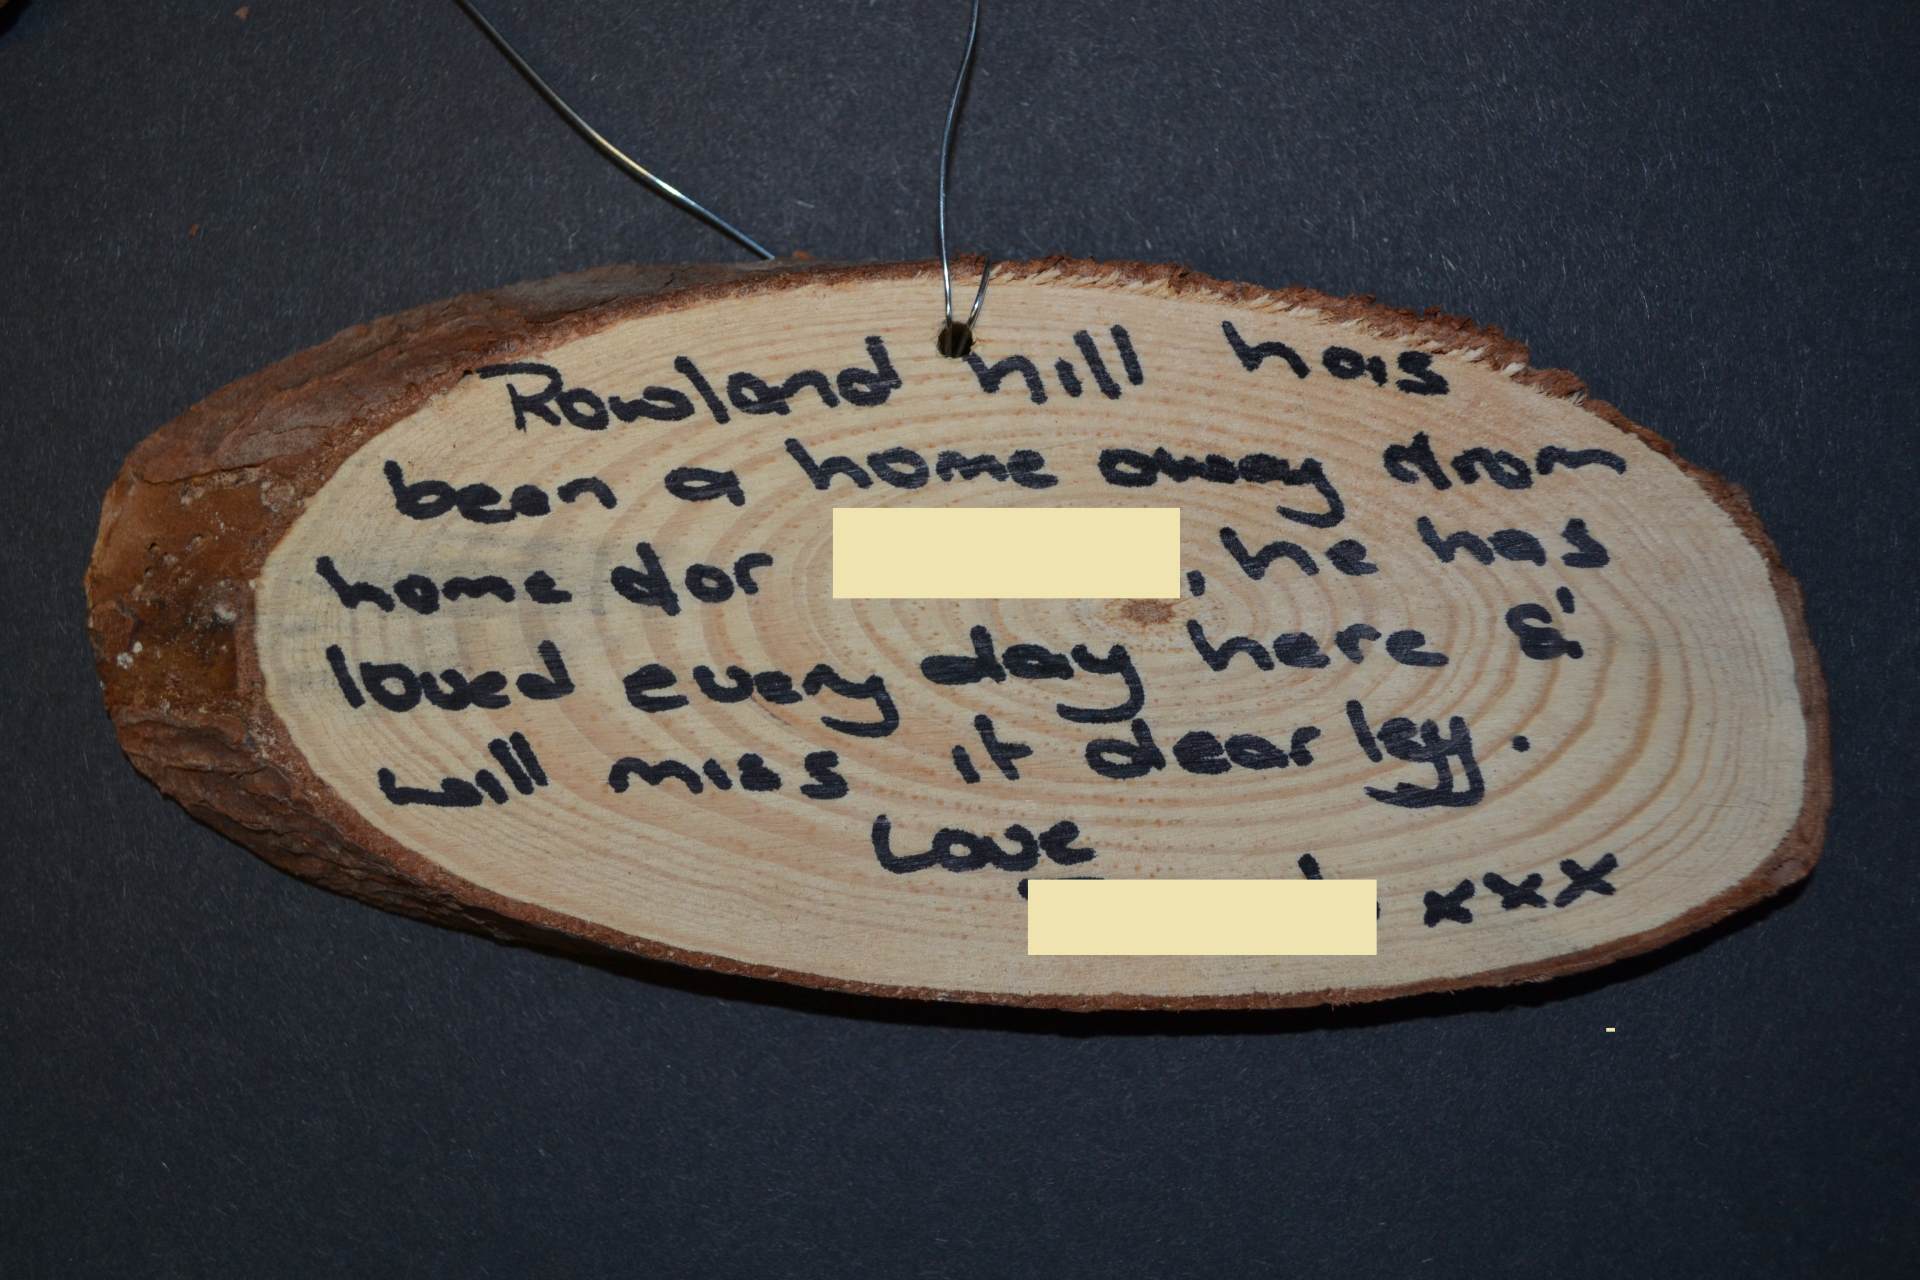 Rowland hill has
been a home away from
home for , he has
loved every day here &
will miss it dearley.
Love
xxx